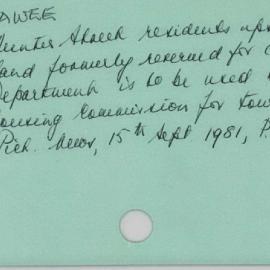 AWEE
Hunter Street residents ups
land formerly reserved for
Department is to be used
ousing Commission for tow
Pict. News, 15th Sept 1981, P.